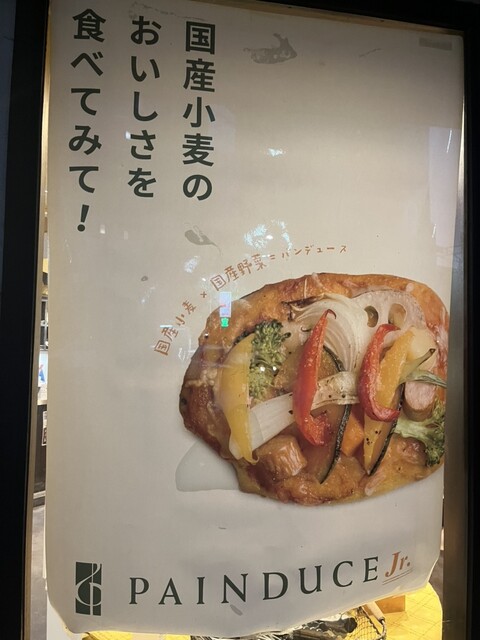 国産小麦の
おいしさを
食べてみて!
国産小麦×国産野菜=パンデュース
PAINDUCE Jr.